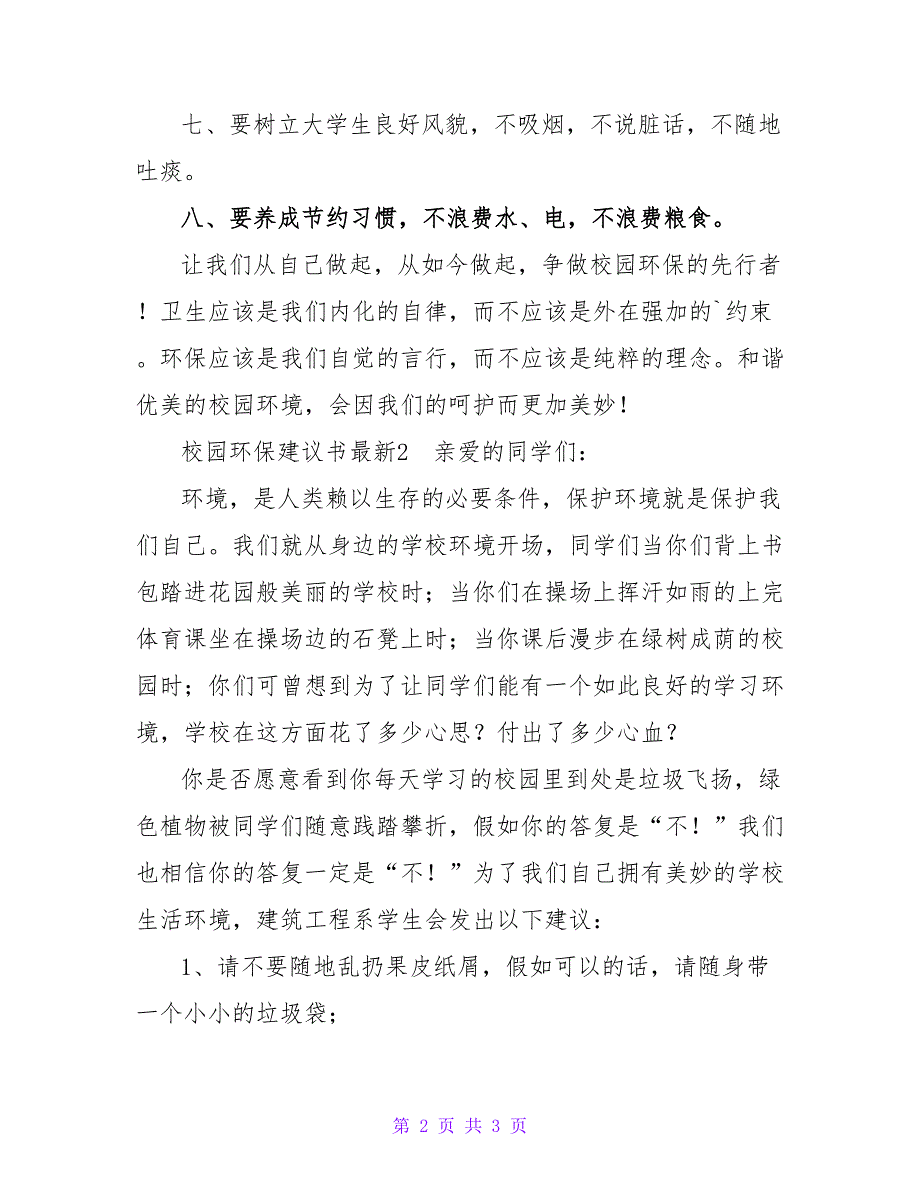 七、要树立大学生良好风貌，不吸烟，不说脏话，不随地
吐痰。
八、要养成节约习惯，不浪费水、电，不浪费粮食。
让我们从自己做起，从如今做起，争做校园环保的先行者
！卫生应该是我们内化的自律，而不应该是外在强加的`约束
。环保应该是我们自觉的言行，而不应该是纯粹的理念。和谐
优美的校园环境，会因我们的呵护而更加美妙！
校园环保建议书最新2　亲爱的同学们：
环境，是人类赖以生存的必要条件，保护环境就是保护我
们自己。我们就从身边的学校环境开场，同学们当你们背上书
包踏进花园般美丽的学校时；当你们在操场上挥汗如雨的上完
体育课坐在操场边的石凳上时；当你课后漫步在绿树成荫的校
园时；你们可曾想到为了让同学们能有一个如此良好的学习环
境，学校在这方面花了多少心思？付出了多少心血？
你是否愿意看到你每天学习的校园里到处是垃圾飞扬，绿
色植物被同学们随意践踏攀折，假如你的答复是“不！”我们
也相信你的答复一定是“不！”为了我们自己拥有美妙的学校
生活环境，建筑工程系学生会发出以下建议：
1、请不要随地乱扔果皮纸屑，假如可以的话，请随身带
一个小小的垃圾袋；
第 2 页 共 3 页